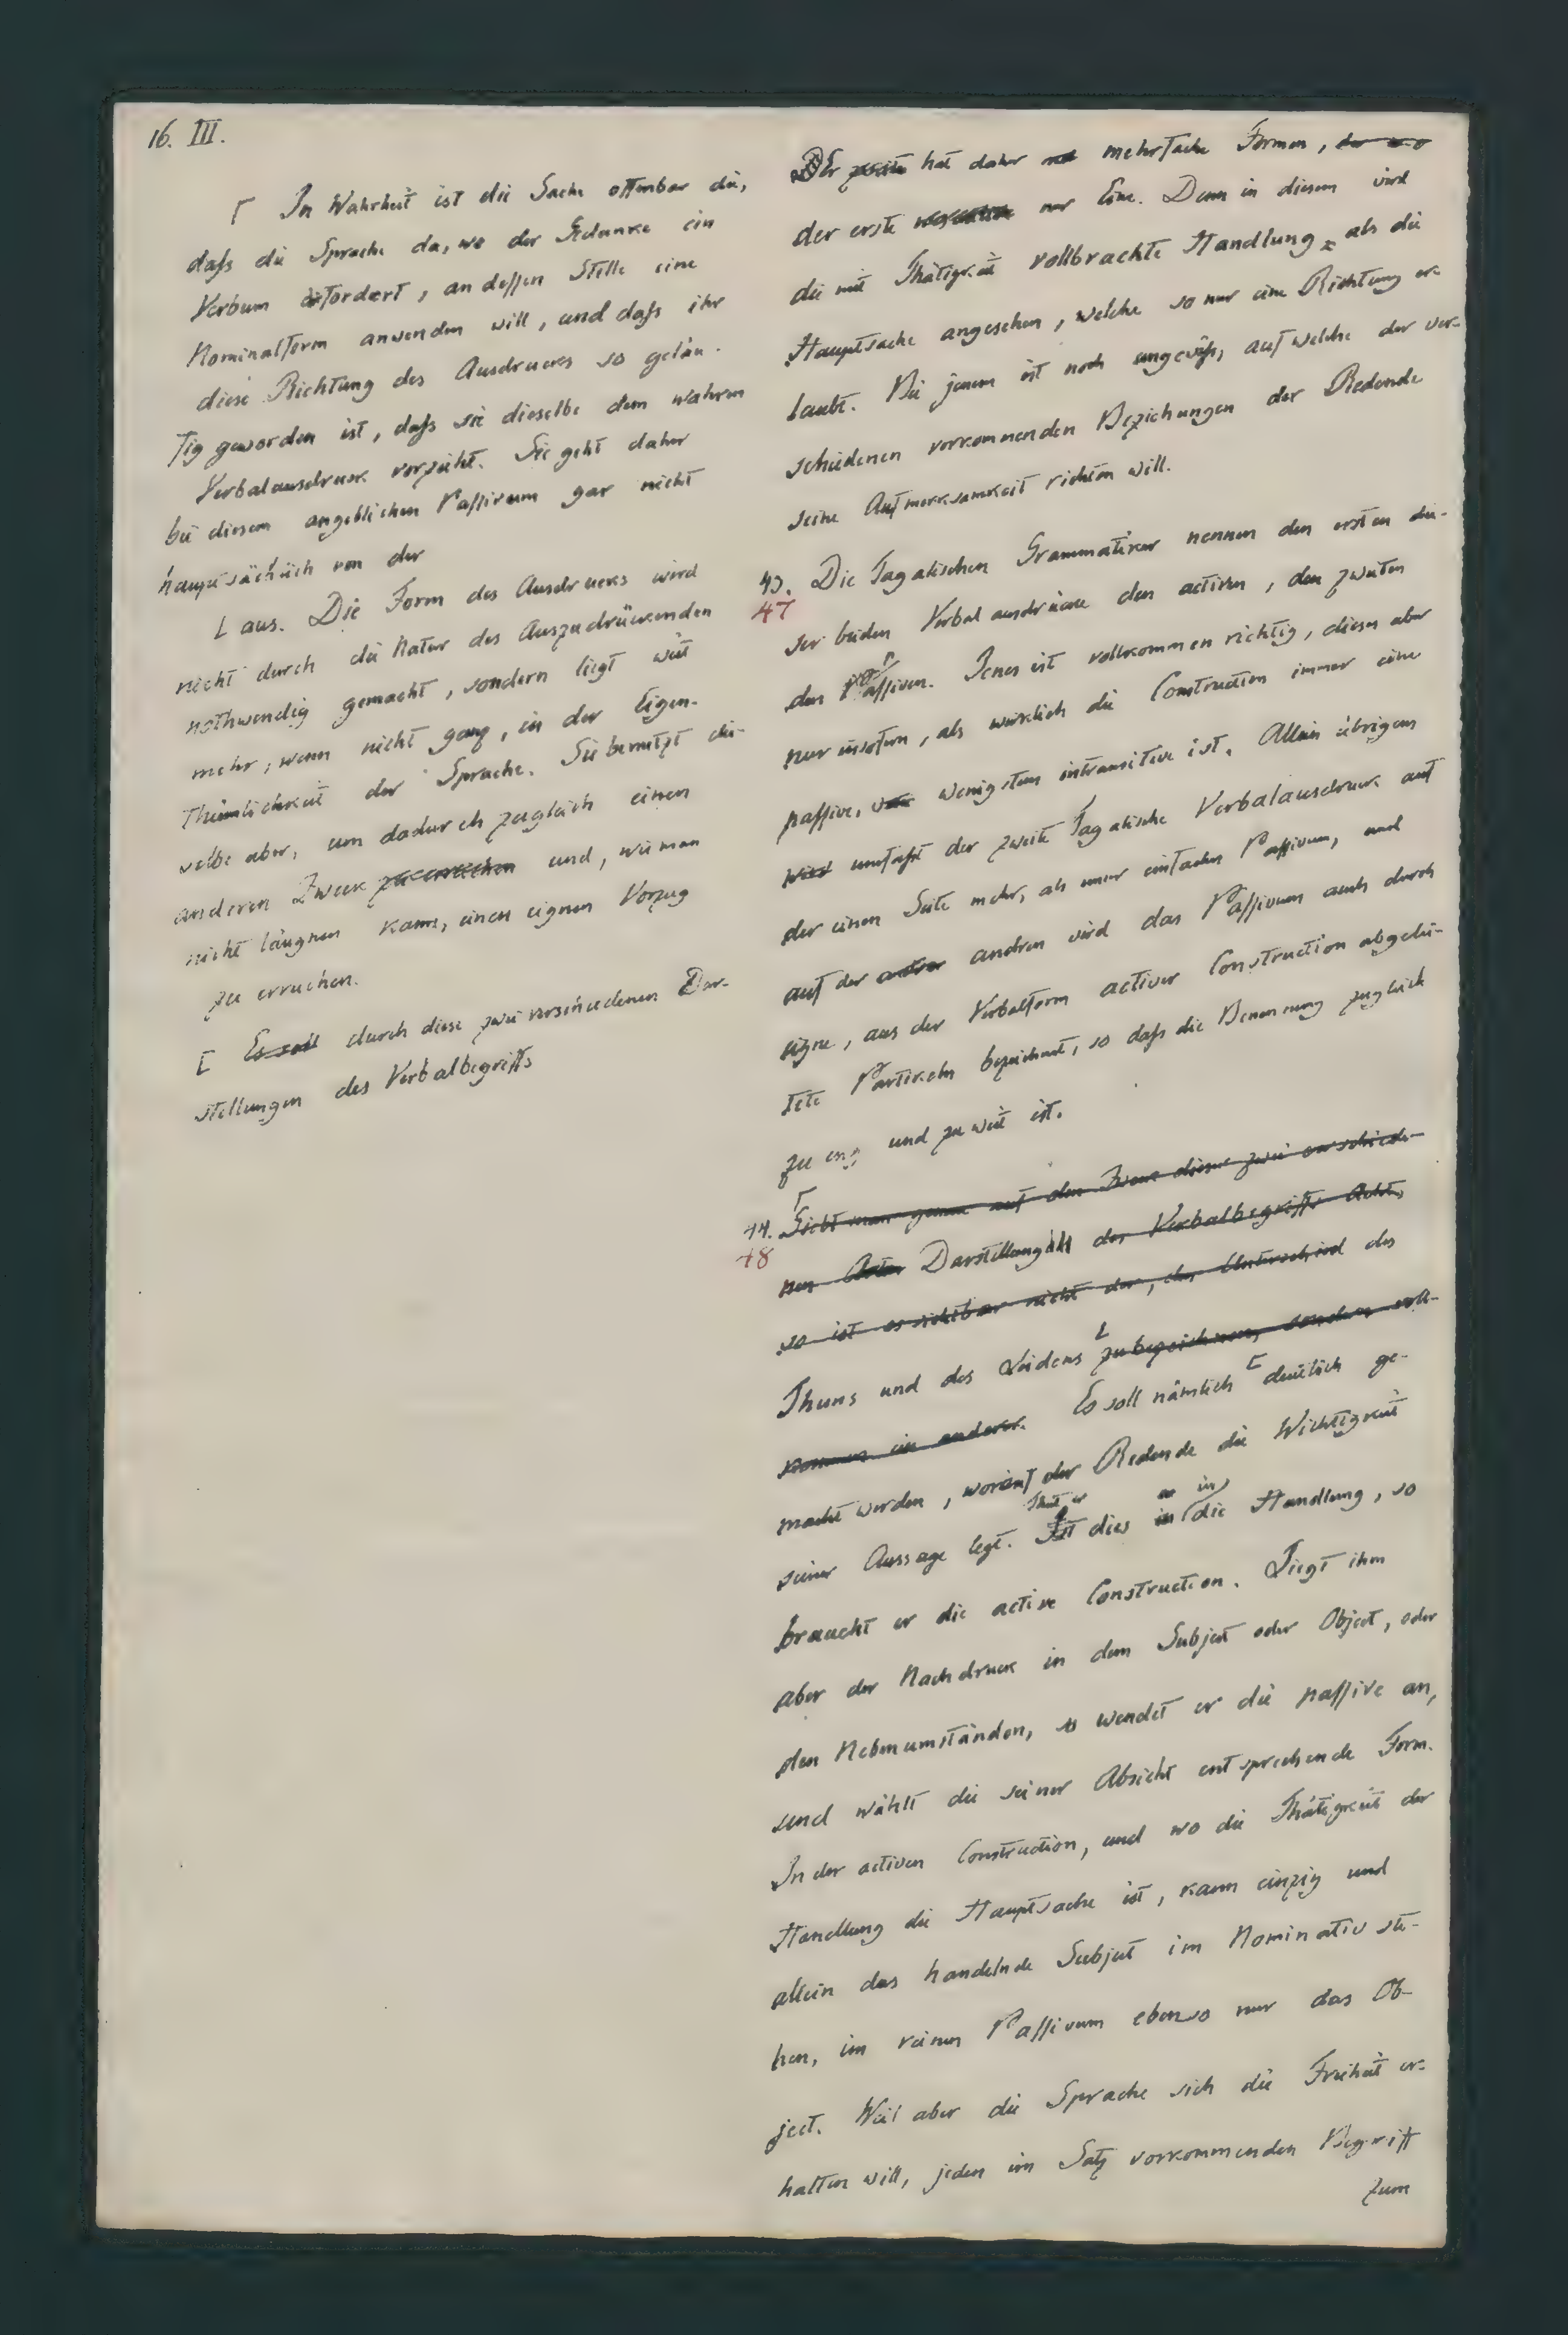 16. III.
⌈ In Wahrheit ist die Sache offenbar die,
daſs die Sprache da, wo der Gedanke ein
Verbum erfordert, an deſsen Stelle eine
Nominalform anwenden will, und daſs ihr
diese Richtung des Ausdrucks so geläu-
fig geworden ist, daſs sie dieselbe dem wahren
Verbalausdruck vorzieht. Sie geht daher
bei diesem angeblichen Paſsivum gar nicht
hauptsächlich von der
⌊ aus. Die Form des Ausdrucks wird
nicht durch die Natur des Auszudrückenden
nothwendig gemacht, sondern liegt weit
mehr, wenn nicht ganz, in der Eigen-
thümlichkeit der Sprache. Sie benutzt die-
selbe aber, um dadurch zugleich einen
anderen Zweck zu erreichen und, wie man
nicht läugnen kann, einen eignen Vorzug
zu erreichen.
[ Es soll durch diese zwei verschiedenen Dar-
stellungen des Verbalbegriffs
Der zweite hat daher mehrfache Formen,
der erste nur Eine. Denn in diesem wird
die mit Thätigkeit vollbrachte Handlung als die
Hauptsache angesehen, welche so nur eine Richtung er-
laubt. Bei jenem ist noch ungewiſs, auf welche der ver-
schiedenen vorkommenden Beziehungen der Redende
seine Aufmerksamkeit richten will.
43. Die Tagalischen Grammatiker nennen den ersten die-
47
ser beiden Verbalausdrücke den activen, den zweiten
den Paſsiven. Jenes ist vollkommen richtig, dieses aber
nur insofern, als wirklich die Construction immer eine
paſsive, wenigstens intransitive ist. Allein übrigens
wird umfaſst der zweite Tagalische Verbalausdruck auf
der einen Seite mehr, als unser einfaches Paſsivum, und
auf der andren wird das Paſsivum auch durch
eigne, aus der Verbalform activer Construction abgelei-
tete Partikeln bezeichnet, so daſs die Benennung zugleich
zu eng und zu weit ist.
44. Sieht man genau auf den Zweck dieser zwei verschiede-
48
nen Arten Darstellung des Verbalbegriffs Acht,
so ist es sichtbar nicht der, den Unterschied des
Thuns und des Leidens zu bezeichnen, sondern voll-
kommen ein anderer. Es soll nämlich [ deutlich ge-
macht werden, worauf der Redende die Wichtigkeit
seiner Aussage legt. Thut er dies in die Handlung, so
braucht er die active Construction. Liegt ihm
aber der Nachdruck in dem Subject oder Object, oder
den Nebenumständen, so wendet er die paſsive an,
und wählt die seiner Absicht entsprechende Form.
In der activen Construction, und wo die Thätigkeit der
Handlung die Hauptsache ist, kann einzig und
allein das handelnde Subject im Nominativ ste-
hen, im reinen Paſsivum ebenso nur das Ob-
ject. Weil aber die Sprache sich die Freiheit er-
halten will, jeden im Satz vorkommenden Begriff
zum